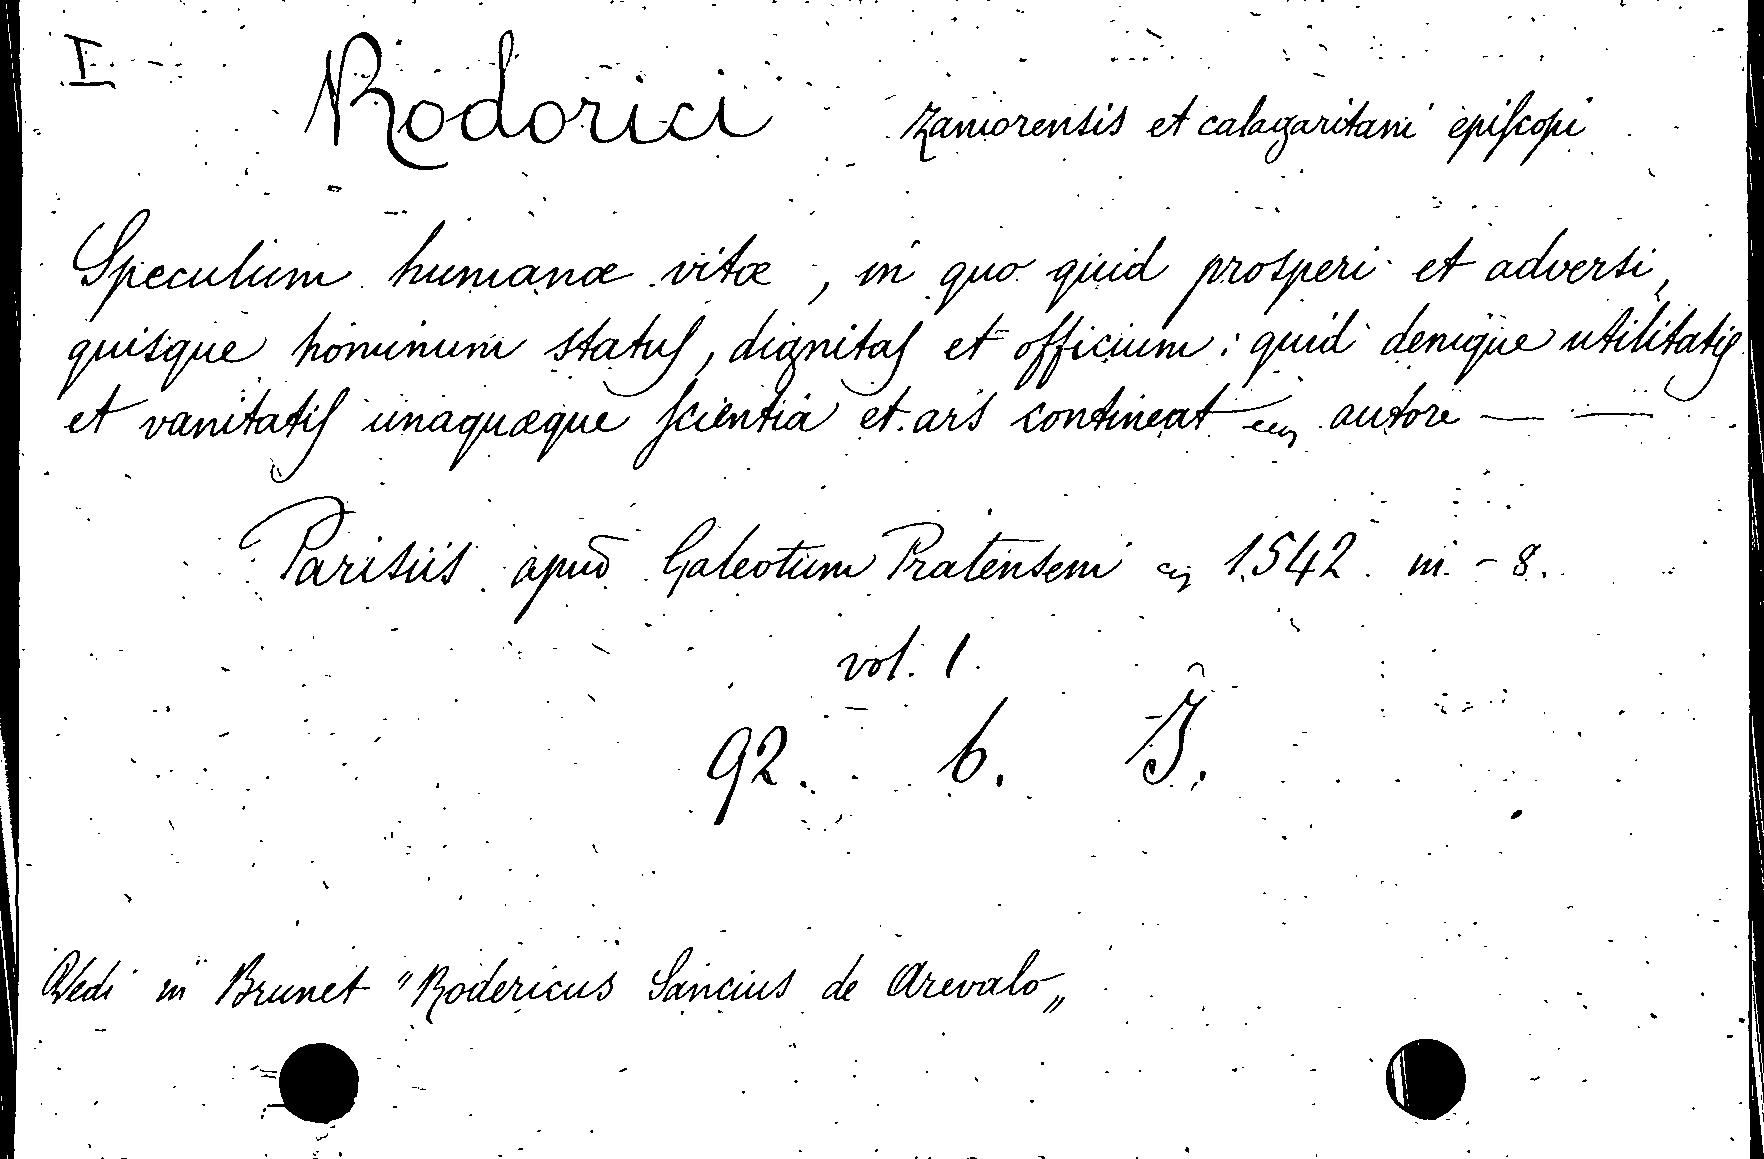 I Rodorici zamorensis et calagaritani episcopi
Speculum humanæ vitæ, in quo quid prosperi et adversi,
quisque hominum status, dignitas et officium: quid denique utilitatis
et vanitatis unaquæque scientia et ars contineat autore — —
Parisiis apud Galeotum Pratensem 1542 in-8.
vol. 1.
92. 6. I.
Vedi in Brunet "Rodericus Sancius de Arevalo„